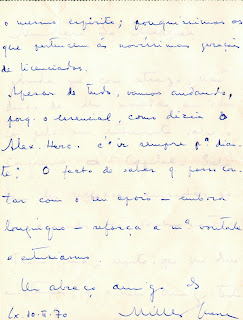 o mesmo espírito; pouquíssimos os
que pertencem às novíssimas gerações
de licenciados.
Apesar de tudo, vamos andando,
porq. o essencial, como dizia o
Alex. Herc. é ir sempre p.ª dian-
te! O facto de saber q posso con-
tar com o seu apoio – embora
longínquo – reforça a m.ª vontade
e entusiasmo.
Um abraço amigo do
Lx. 10.II.70 Miller Guerra